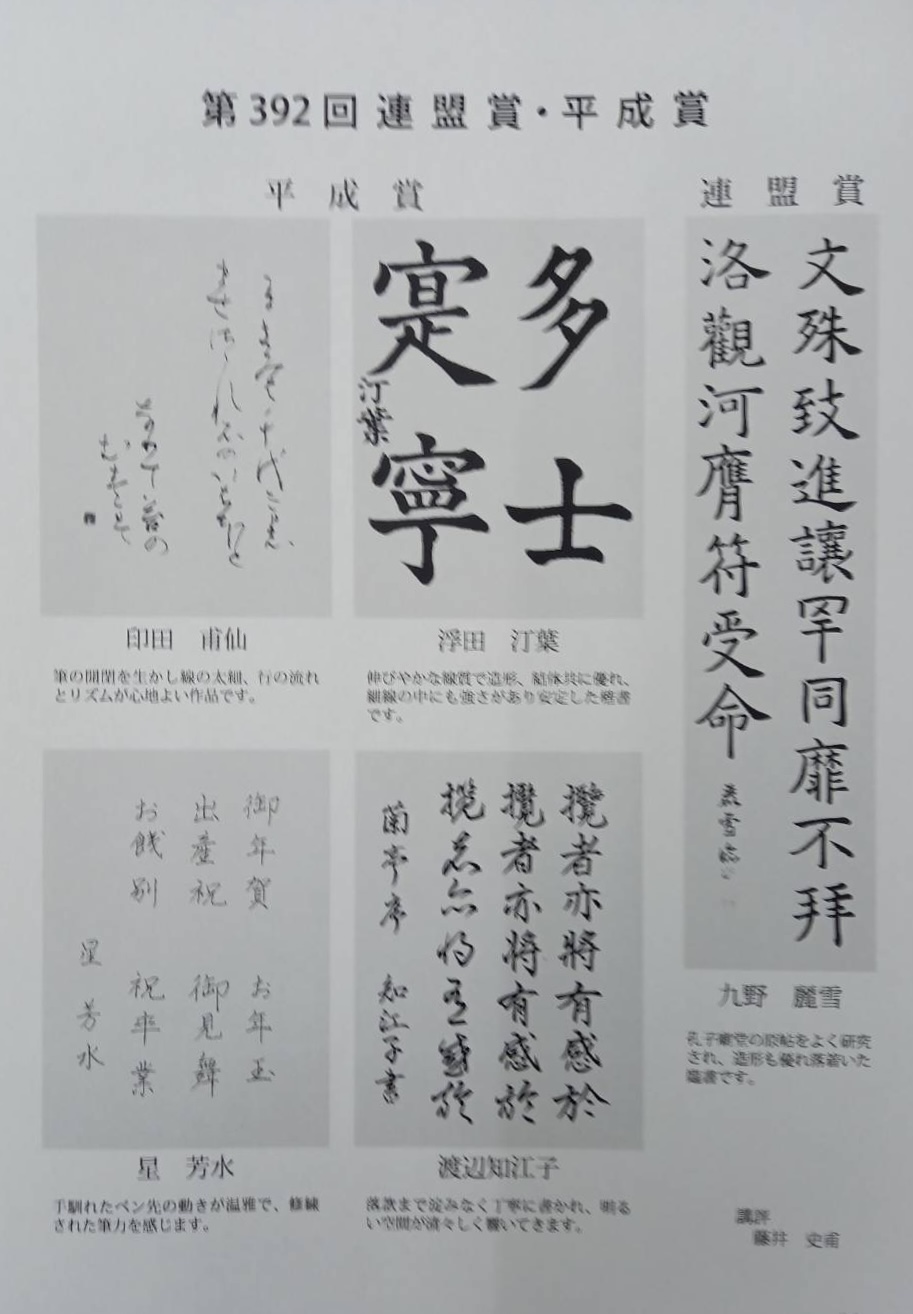 第392回 連盟賞・平成賞
連盟賞
文殊致進讓罕同靡不拜
洛觀河膺符受命
九野 麗雪
孔子廟堂の原帖をよく研究
され、造形も優れ落着いた
臨書です。
平成賞
多士
寔寧
汀葉
浮田 汀葉
伸びやかな線質で造形、結体共に優れ、
細線の中にも強さがあり安定した楷書
です。
印田 甫仙
筆の開閉を生かし線の太細、行の流れ
とリズムが心地よい作品です。
攬者亦將有感於
攬者亦将有感於
攬者亦将有感於
蘭亭序 知江子書
渡辺知江子
落款まで淀みなく丁寧に書かれ、明る
い空間が清々しく響いてきます。
御年賀 お年玉
出産祝 御見舞
お餞別 祝卒業
星芳水
星 芳水
手馴れたペン先の動きが温雅で、修練
された筆力を感じます。
講評
藤井 史甫